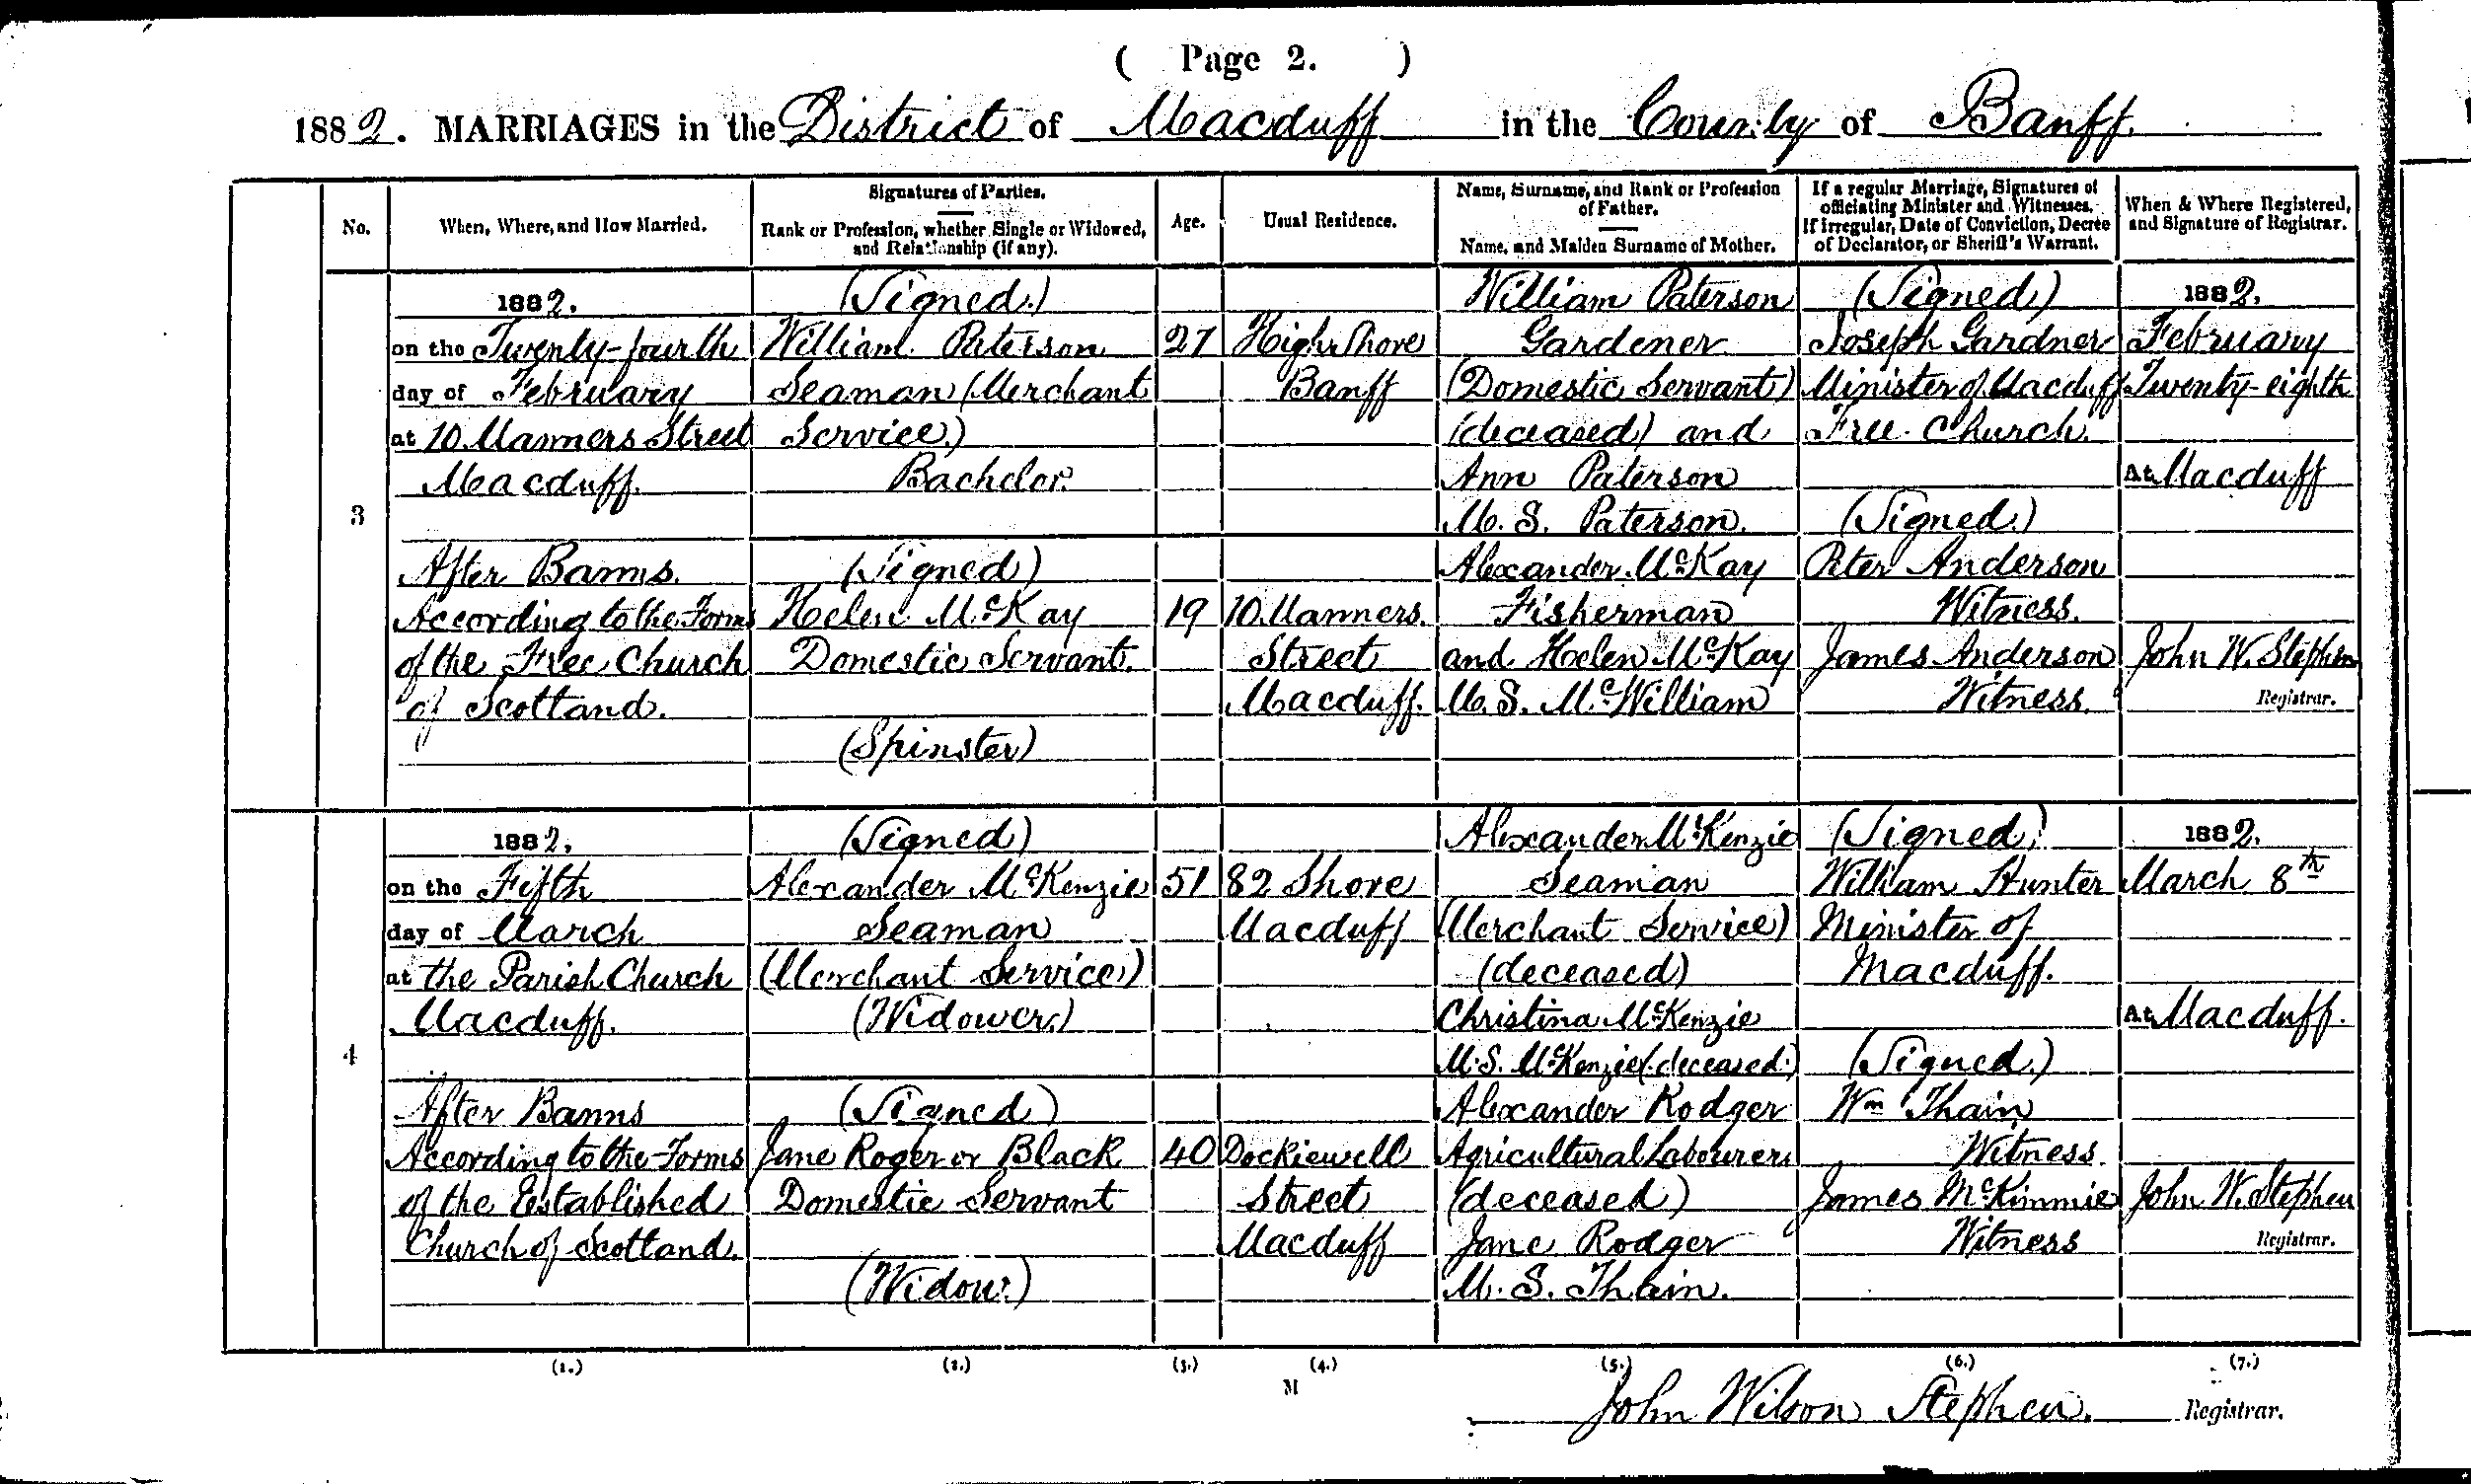 ( Page 2. )
1882. MARRIAGES in the District of Macduff in the County of Banff.
No.
When, Where, and How Married.
Signatures of Parties.
Rank or Profession, whether Single or Widowed,
and Relationship (if any).
Age.
Usual Residence.
Name, Surname, and Rank or Profession
of Father.
Name, and Maiden Surname of Mother.
If a regular Marriage, Signatures of
officiating Minister and Witnesses.
If irregular, Date of Conviction, Decree
of Declarator, or Sheriff's Warrant.
When & Where Registered,
and Signature of Registrar.
3
1882.
on the Twenty-fourth
day of February
at 10 Manners Street
Macduff.
After Banns.
According to the Forms
of the Free Church
of Scotland.
(Signed.)
William Paterson
Seaman (Merchant
Service.)
Bachelor.
(Signed)
Helen McKay
Domestic Servant.
(Spinster)
27
19
High Shore
Banff
10 Manners
Street
Macduff.
William Paterson
Gardener
(Domestic Servant)
(deceased) and
Ann Paterson
M. S. Paterson.
Alexander McKay
Fisherman
and Helen McKay
M. S. McWilliam
(Signed)
Joseph Gardner
Minister of Macduff
Free Church.
(Signed.)
Peter Anderson
Witness.
James Anderson
Witness.
1882.
February
Twenty-eighth
At Macduff
John W. Stephen
Registrar.
4
1882.
on the Fifth
day of March
at the Parish Church
Macduff.
After Banns
According to the Forms
of the Established
Church of Scotland.
(Signed)
Alexander McKenzie
Seaman
(Merchant Service)
(Widower.)
(Signed)
Jane Roger or Black
Domestic Servant
(Widow.)
51
40
82 Shore
Macduff
Dockiewell
Street
Macduff
Alexander McKenzie
Seaman
(Merchant Service)
(deceased)
Christina McKenzie
M.S. McKenzie (deceased.)
Alexander Rodger
Agricultural Labourer
(deceased)
Jane Rodger
M. S. Thain.
(Signed)
William Hunter
Minister of
Macduff.
(Signed.)
Wm Thain
Witness.
James McKimmie
Witness
1882.
March 8th
At Macduff.
John W. Stephen
Registrar.
(1.) (2.) (3.) (4.) (5.) (6.) (7.)
M
John Wilson Stephen. Registrar.